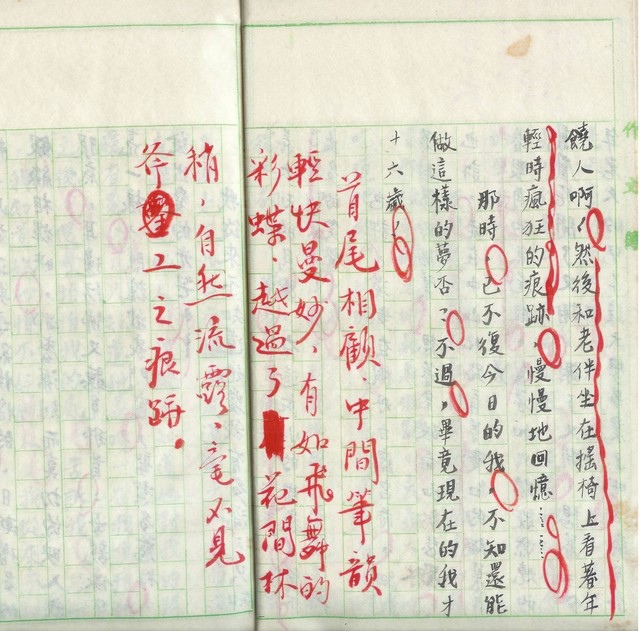 饒人啊！然後和老伴坐在搖椅上看著年
輕時瘋狂的痕跡，慢慢地回憶……
那時，已不復今日的我，不知還能
做這樣的夢否？不過，畢竟現在的我才
十六歲！
首尾相顧．中間筆韻
輕快曼妙、有如飛舞的
彩蝶．越過了花間林
稍，自然流露、毫不見
斧工之痕跡．